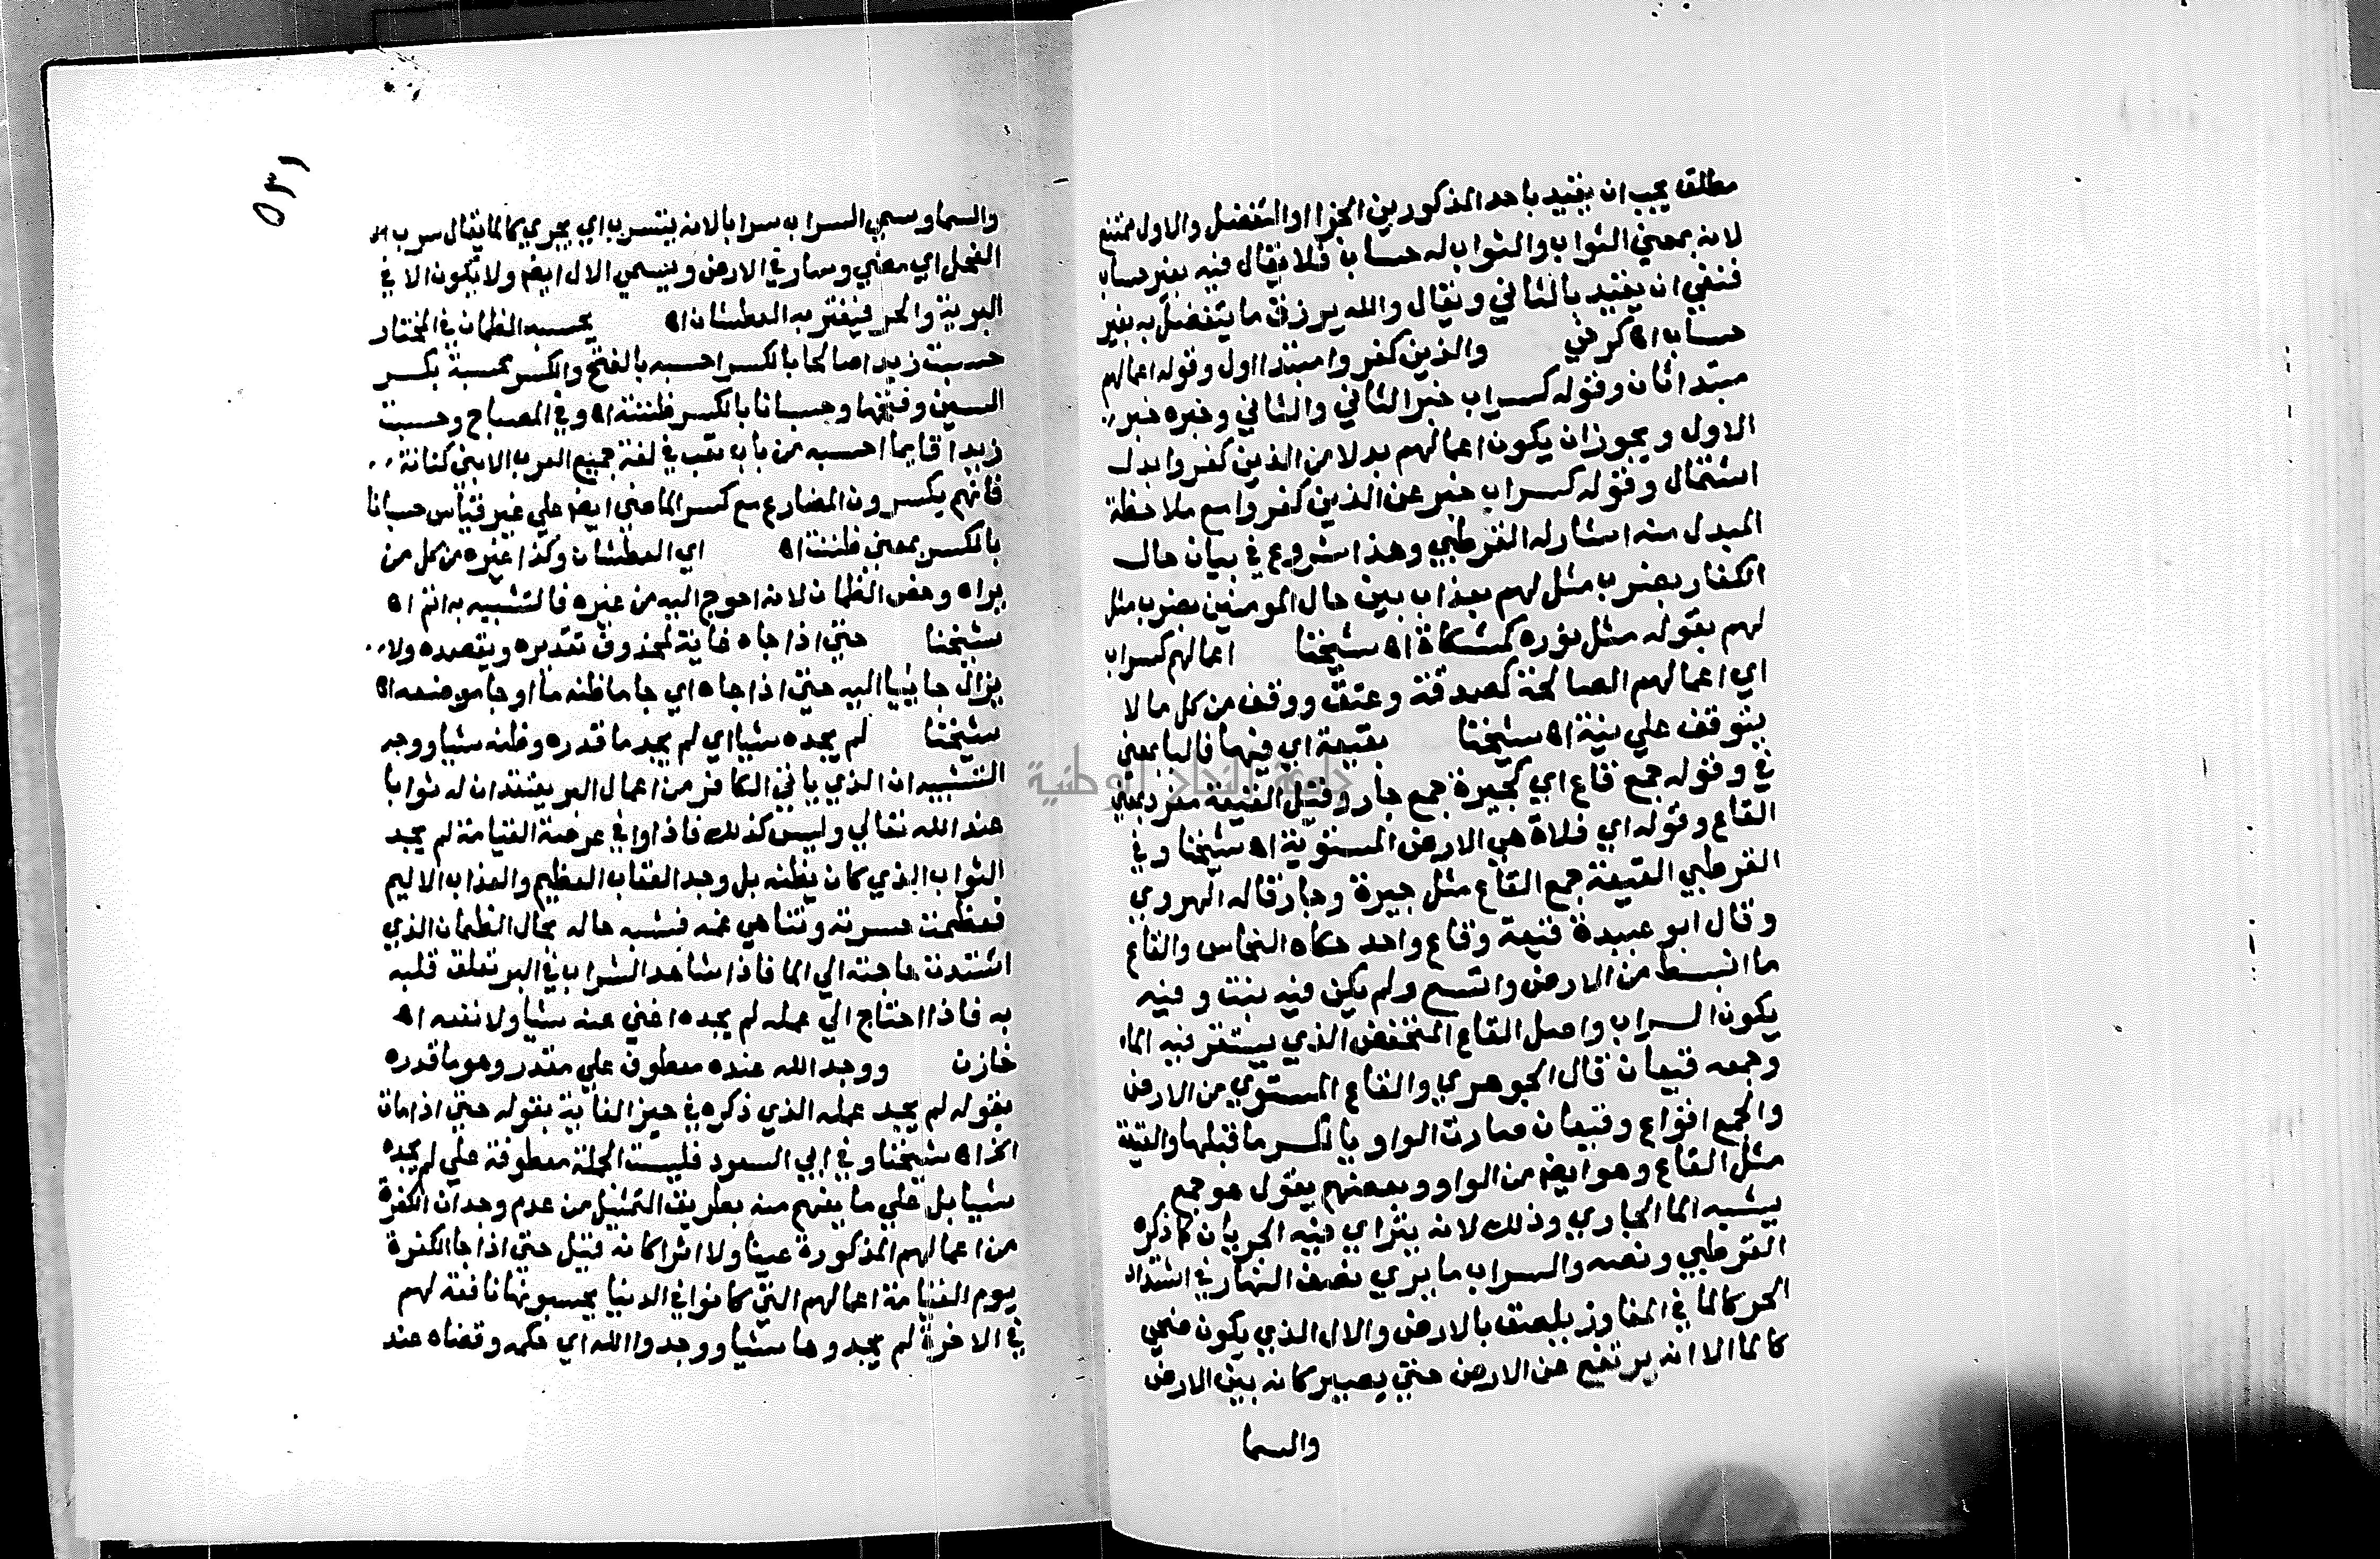 مطلقا يجب ان يقيد باحد المذكورين الجزا او التفضل والاول ممتنع
لانه بمعني الثواب والثواب له حساب فلا يقال فيه بغير حساب
فنفي ان يقيد بالثاني ويقال والله يرزق ما يتفضل به بغير
حساب اه كرخي والذين كفروا مبتدا اول وقوله اعمالهم
مبتدا ثان وقوله كسراب خبر الثاني والثاني وخبره خبر
الاول ويجوز ان يكون اعمالهم بدلا من الذين كفروا بدل
اشتمال وقوله كسراب خبر عن الذين كفروا مع ملاحظة
المبدل منه اشار له القرطبي وهذا شروع في بيان حال
الكفار بضرب مثل لهم بعد اب بين حال المومنين بضرب مثل
لهم بقوله مثل نوره كمشكاة اه شيخنا اعمالهم كسراب
اي اعمالهم الصالحة كصدقة وعتق ووقف من كل ما لا
يتوقف علي نية اه شيخنا بقيعة اي فيها فالبا بمعني
في وقوله جمع قاع اي كجيرة جمع جار وقيل القيعة مفرد بمعني
القاع وقوله اي فلاة هي الارض المستوية اه شيخنا وفي
القرطبي القيعة جمع القاع مثل جيرة وجار قاله الهروي
وقال ابو عبيدة قيعة وقاع واحد حكاه النحاس والقاع
ما انبسط من الارض واتسع ولم يكن فيه نبت وفيه
يكون السراب واصل القاع المنخفض الذي يستقر فيه الما
وجمعه قيعان قال الجوهري والقاع المستوي من الارض
والجمع اقواع وقيعان صارت الواو يا لكسر ما قبلها والقيعة
مثل القاع وهو ايضا من الواو وبعضهم يقول هو جمع
يشبه الما الجاري وذلك لانه يترااي فيه الجريان كما ذكره
القرطبي ونصه والسراب ما يري نصف النهار في اشتداد
الحر كالما في المفاوز يلصق بالارض والال الذي يكون ضحي
كالما الا انه يرتفع عن الارض حتي يصير كانه بين الارض
والسما
٥٣١
والسما وسمي السراب سرابا لانه يتسرب اي يجري كالما يقال سرب
الفحل اي مضي وسار في الارض ويسمي الال ايضا ولا يكون الا في
البرية والحر فيغتر به العطشان اه يحسبه الظمان في المختار
حسبت زيدا صالحا بالكسر احسبه بالفتح والكسر محسبة بكسر
السين وفتحها وحسبانا بالكسر ظننته اه وفي المصباح وحسبت
زيدا قايما احسبه من باب تعب في لغة جميع العرب الا بني كنانة
فانهم يكسرون المضارع مع كسر الماضي ايضا علي غير قياس حسبانا
بالكسر بمعني ظننته اه اي العطشان وكذا غيره من كل من
يراه وخص الظمان لانه احوج اليه من غيره فالتشبيه به اتم اه
شيخنا حتي اذا جاه غاية لمحذوف تقديره ويقصده ولا
يزال جاييا اليه حتي اذا جاه اي جا ما ظنه ما او جا موضعه اه
شيخنا لم يجده شيا اي لم يجد ما قدره وظنه شيا ووجه
التشبيه ان الذي ياتي الكافر من اعمال البر يعتقد ان له ثوابا
عند الله تعالي وليس كذلك فاذا وافي عرضة القيامة لم يجد
الثواب الذي كان يظنه بل وجد العقاب العظيم والعذاب الاليم
فعظمت حسرته وتناهي غمه فشبه حاله بحال الظمان الذي
اشتدت حاجته الي الما فاذا شاهد السراب في البر تعلق قلبه
به فاذا احتاج الي عمله لم يجده اغني عنه شيا ولا نفعه اه
خازن ووجد الله عنده معطوف علي مقدر وهو ما قدره
بقوله لم يجد عمله الذي ذكره في حيز الغاية بقوله حتي اذا مات
الخ اه شيخنا وفي ابي السعود فليست الجملة معطوفة علي لم يجده
شيا بل علي ما يفهم منه بطريق التمثيل من عدم وجدان الكفرة
من اعمالهم المذكورة عينا ولا اثرا كانه قيل حتي اذا جا الكفرة
يوم القيامة اعمالهم التي كانوا في الدنيا يحسبونها نافعة لهم
في الاخرة لم يجدوها شيا ووجدوا الله اي حكمه وقضاه عند
جامعة النجاح الوطنية